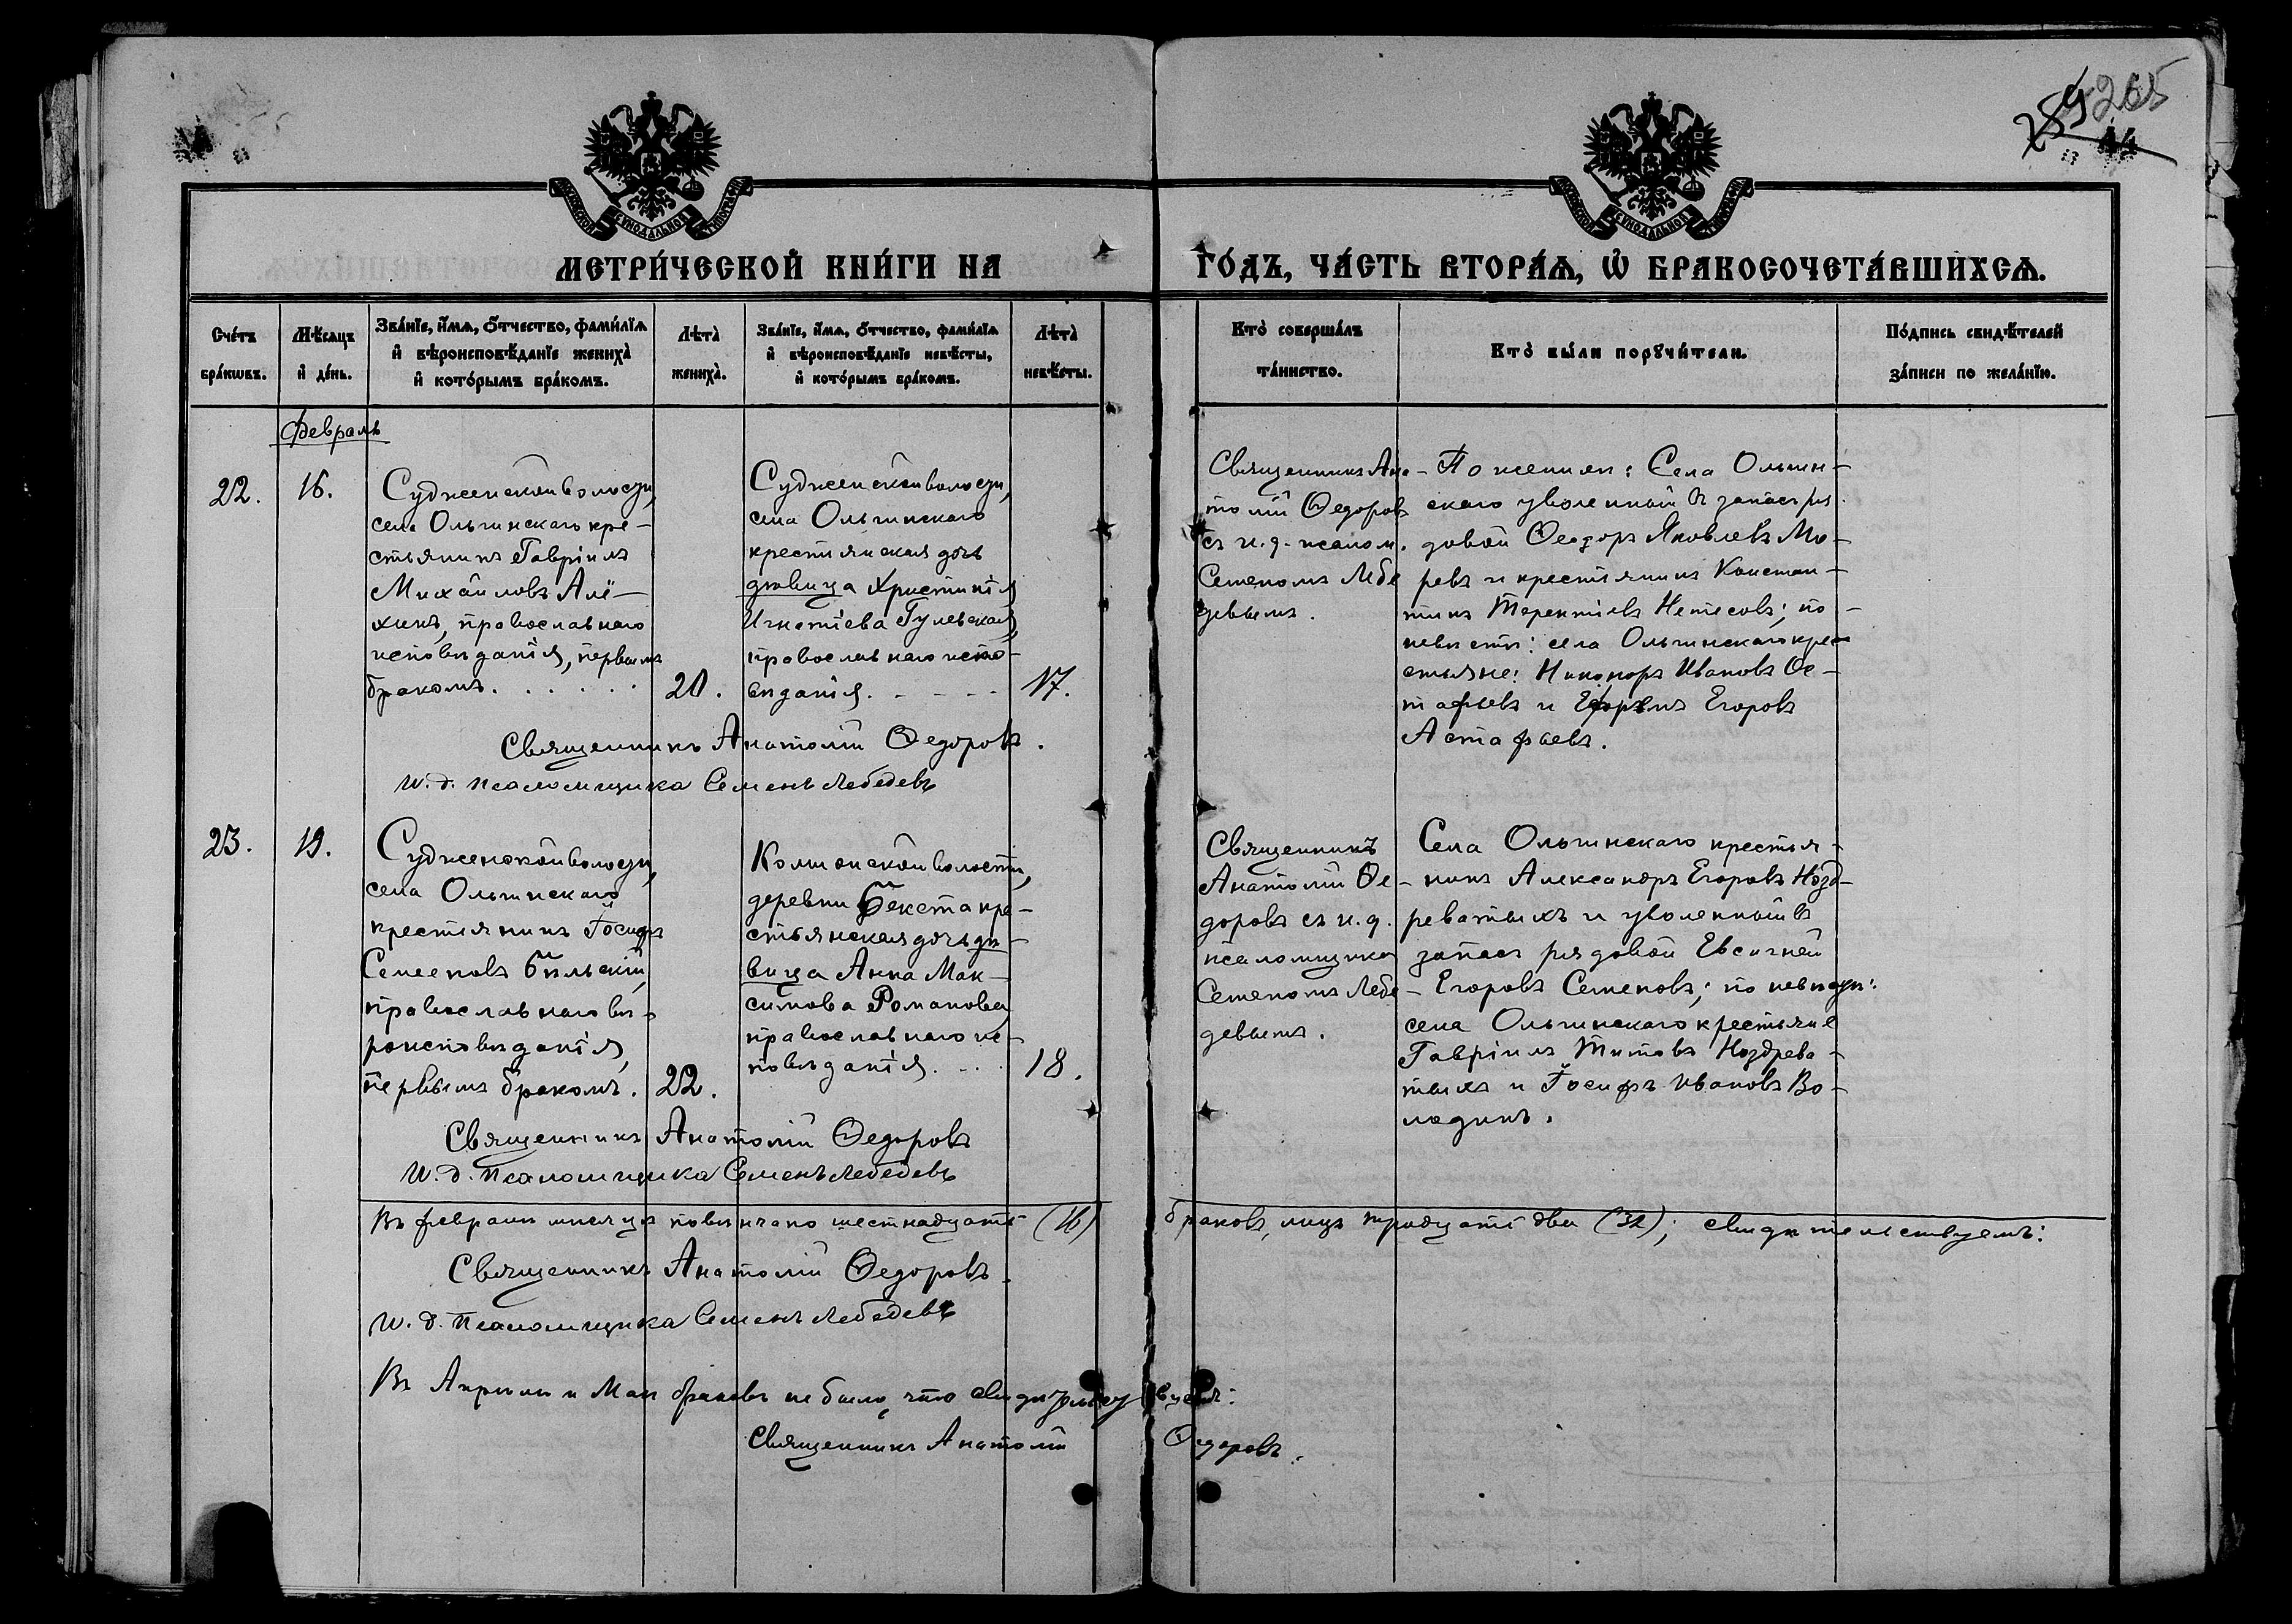 259 265
44
МОСКОВСКОЙ СѴНОДАЛЬНОЙ ТИПОГРАФІИ
МОСКОВСКОЙ СѴНОДАЛЬНОЙ ТИПОГРАФІИ
МЕТРИ́ЧЕСКОЙ КНИ́ГИ НА
ГО́ДЪ, ЧА́СТЬ ВТОРА́Ѧ, Ѽ БРАКОСОЧЕТА́ВШИХСѦ.
Сче́тъ
бра́кѡвъ.
Мѣ́сѧцъ
и҆ де́нь.
Зва́нїе, и҆́мѧ, ѻ҆́тчество, фами́лїѧ
и҆ вѣроисповѣ́данїе жениха̀
и҆ кото́рымъ бра́комъ.
Лѣта̀
жениха̀.
Зва́нїе, и҆́мѧ, ѻ҆́тчество, фами́лїѧ
и҆ вѣроисповѣ́данїе невѣ́сты,
и҆ кото́рымъ бра́комъ.
Лѣта̀
невѣ́сты.
Кто̀ соверша́лъ
та́инство.
Кто̀ бы́ли порꙋчи́тели.
По́дпись свидѣ́телей
за́писи по жела́нїю.
Февраль
22.
16.
Судженской волости,
села Ольгинскаго кре-
стьянинъ Гавріилъ
Михайловъ Алё-
хинъ, православнаго
исповѣданія, первымъ
бракомъ. . . . . .
20.
Судженской волости,
села Ольгинскаго
крестьянская дочь
дѣвица Христинія
Игнатіева Гулевская,
православнаго испо-
вѣданія. - - - -
17.
Священникъ Ана-
толій Ѳедоровъ
съ и. д. псалом.
Семеномъ Лебе
девымъ.
По женихѣ: Села Ольгин-
скаго уволенный въ запасъ ря-
довой Ѳеодоръ Яковлевъ Мо-
ревъ и крестьянинъ Констан-
тинъ Терентіевъ Нетесовъ; по
невѣстѣ: села Ольгинскаго кре-
стьяне: Никоноръ Ивановъ Ос-
тафьевъ и Ефремъ Егоровъ
Астафьевъ.
Священникъ Анатолій Ѳедоровъ.
И. д. псаломщика Семенъ Лебедевъ
23.
19.
Судженской волости,
села Ольгинскаго
крестьянинъ Іосифъ
Семеновъ Бѣльскій,
православнаго вѣ-
роисповѣданія,
первымъ бракомъ.
22.
Коліонской волости,
деревни Бекета кре-
стьянская дочь дѣ-
вица Анна Мак-
симова Романова,
православнаго ис-
повѣданія. - - -
18.
Священникъ
Анатолій Ѳе-
доровъ съ и. д.
псаломщика
Семеномъ Лебе-
девымъ.
Села Ольгинскаго крестья-
нинъ Александръ Егоровъ Нозд-
реватыхъ и уволенный въ
запасъ рядовой Евсигней
Егоровъ Семеновъ; по невѣстѣ:
села Ольгинскаго крестьяне
Гавріилъ Титовъ Ноздрева-
тыхъ и Іосифъ Ивановъ Во-
лодинъ.
Священникъ Анатолій Ѳедоровъ
И. д. Псаломщика Семенъ Лебедевъ
Въ февралѣ мѣсяцѣ повѣнчано шестнадцать (16) браковъ, лицъ тридцать два (32); свидѣтельствуемъ:
Священникъ Анатолій Ѳедоровъ.
И. д. Псаломщика Семенъ Лебедевъ
Въ Апрѣлѣ и Маѣ браковъ не было, что свидѣтельствуемъ:
Священникъ Анатолій Ѳедоровъ.